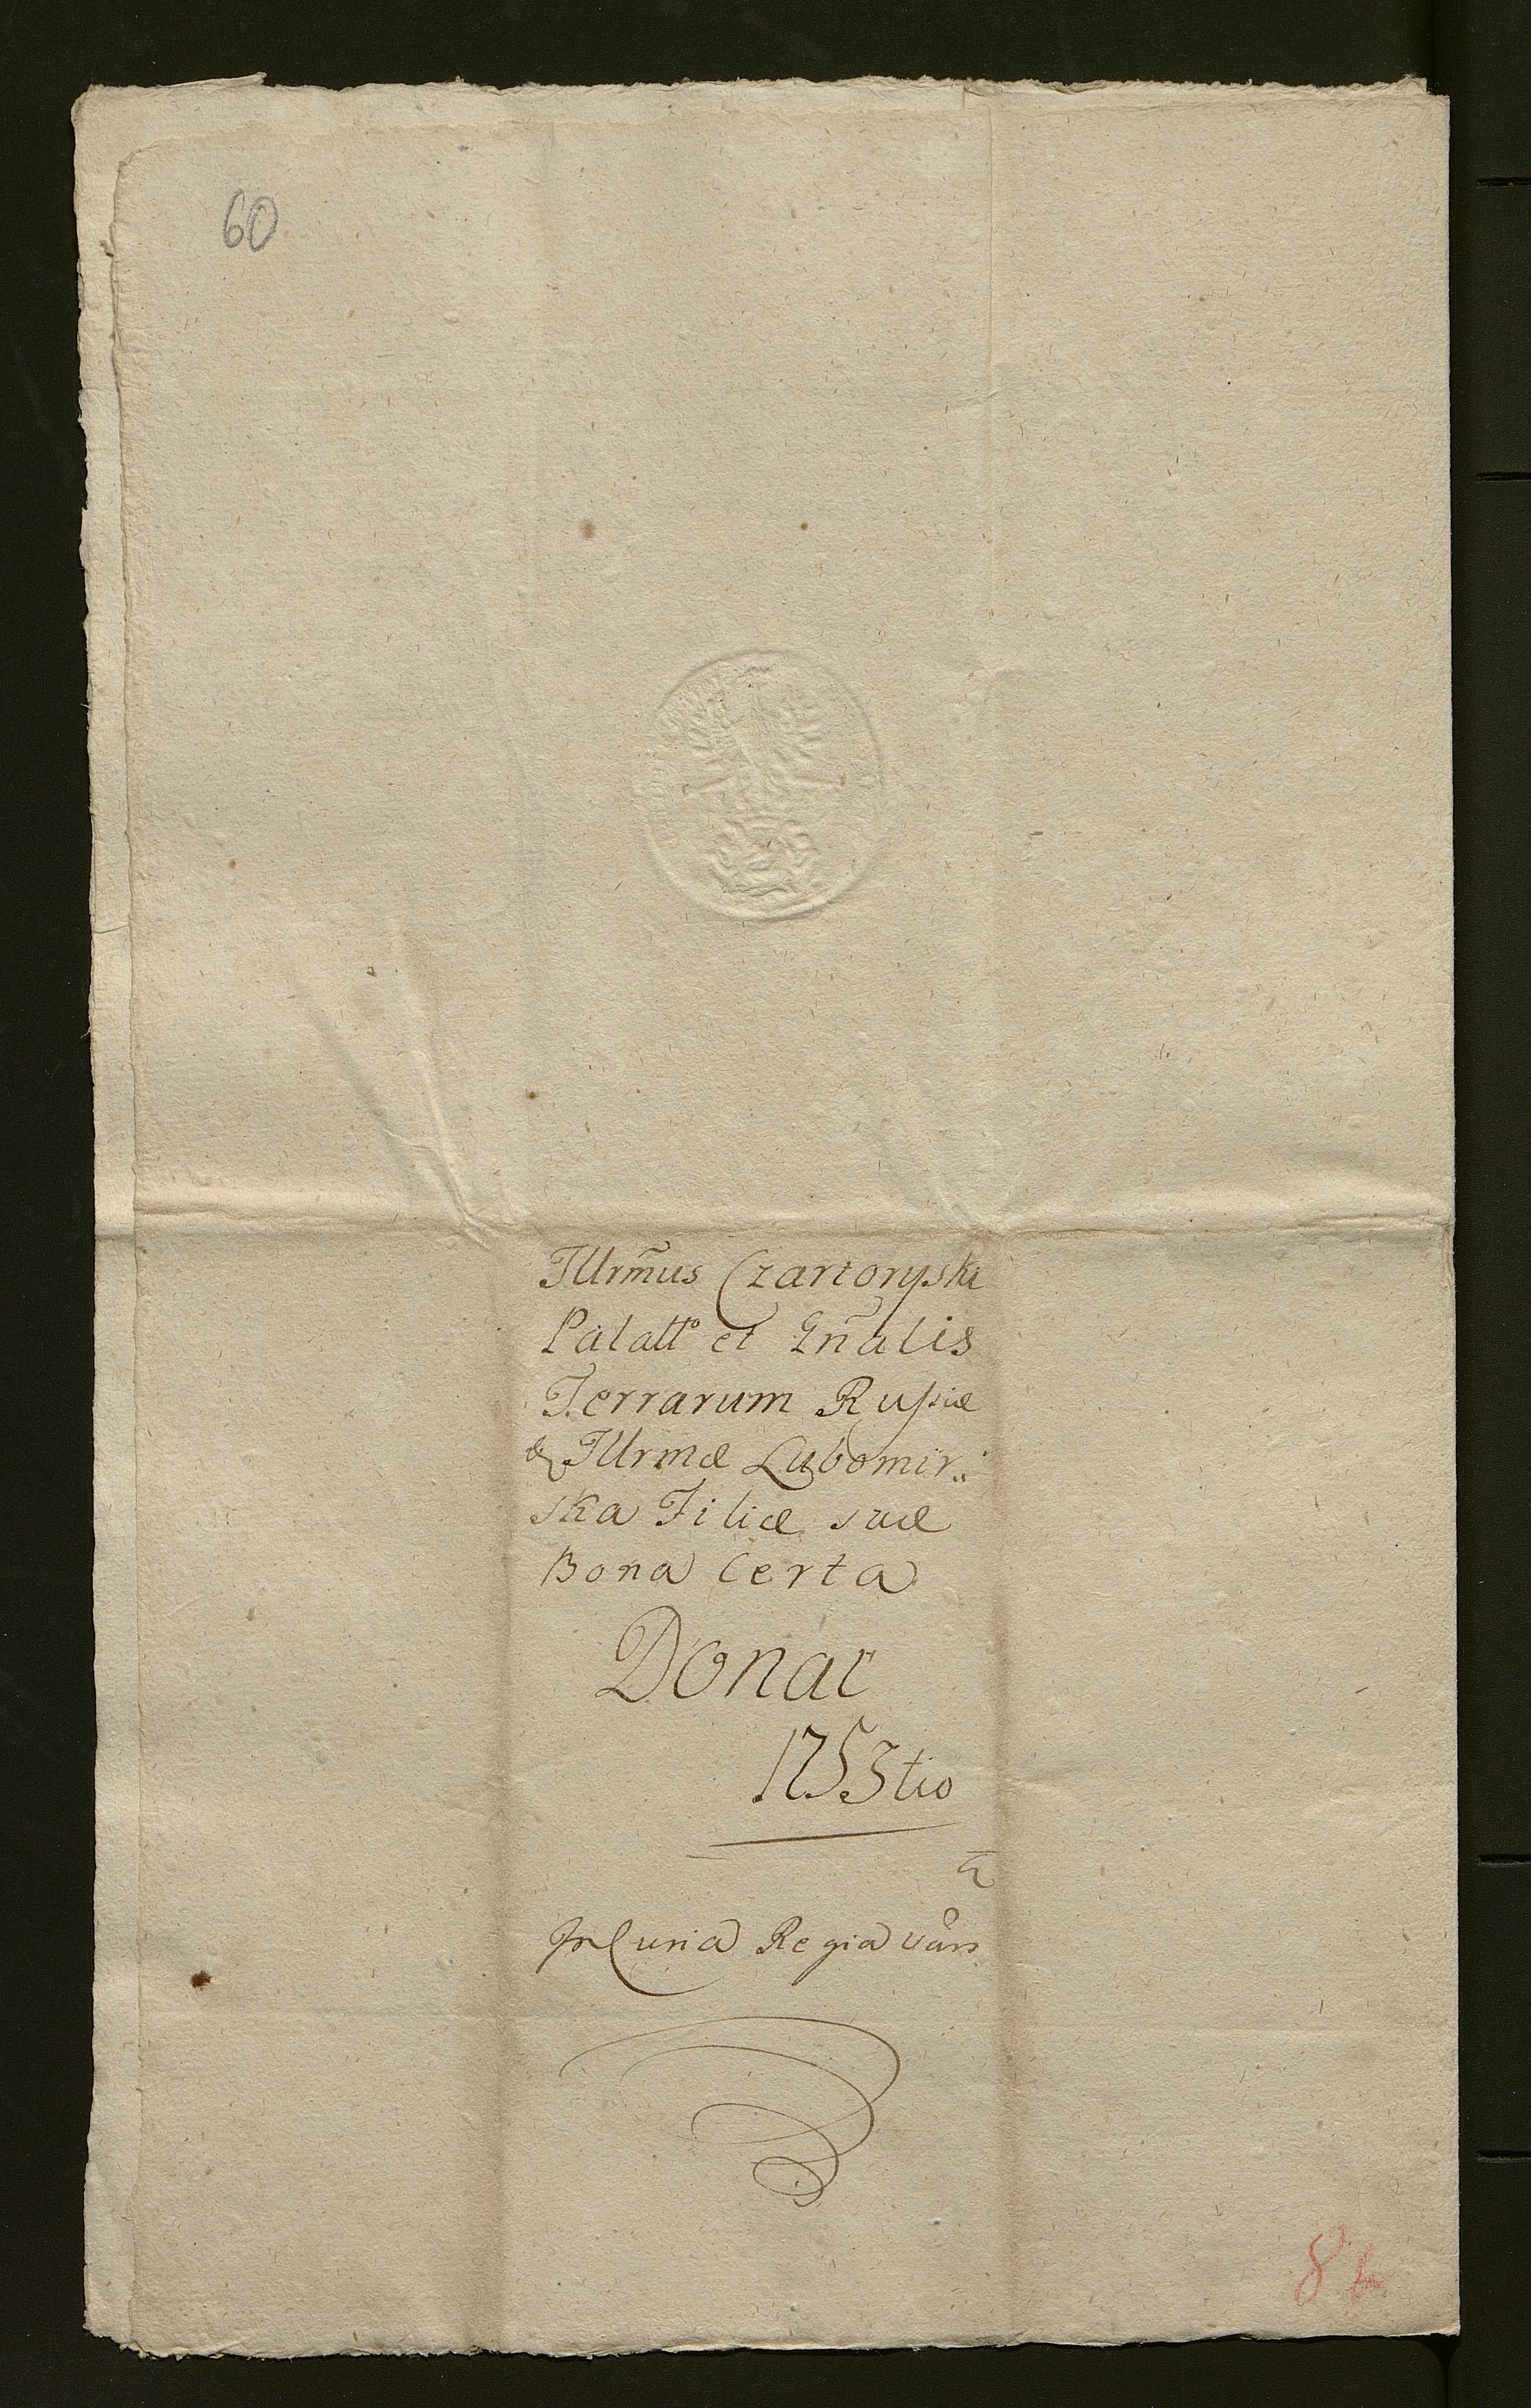 60
Jllrm̃us Czartoryski
Palattº et Gñalis
Terrarum Rußiæ
& Jllrmæ Lubomir„
ska Filiæ suæ
Bona Certa
Donat
1753tio
Jn Curia Regia Vars